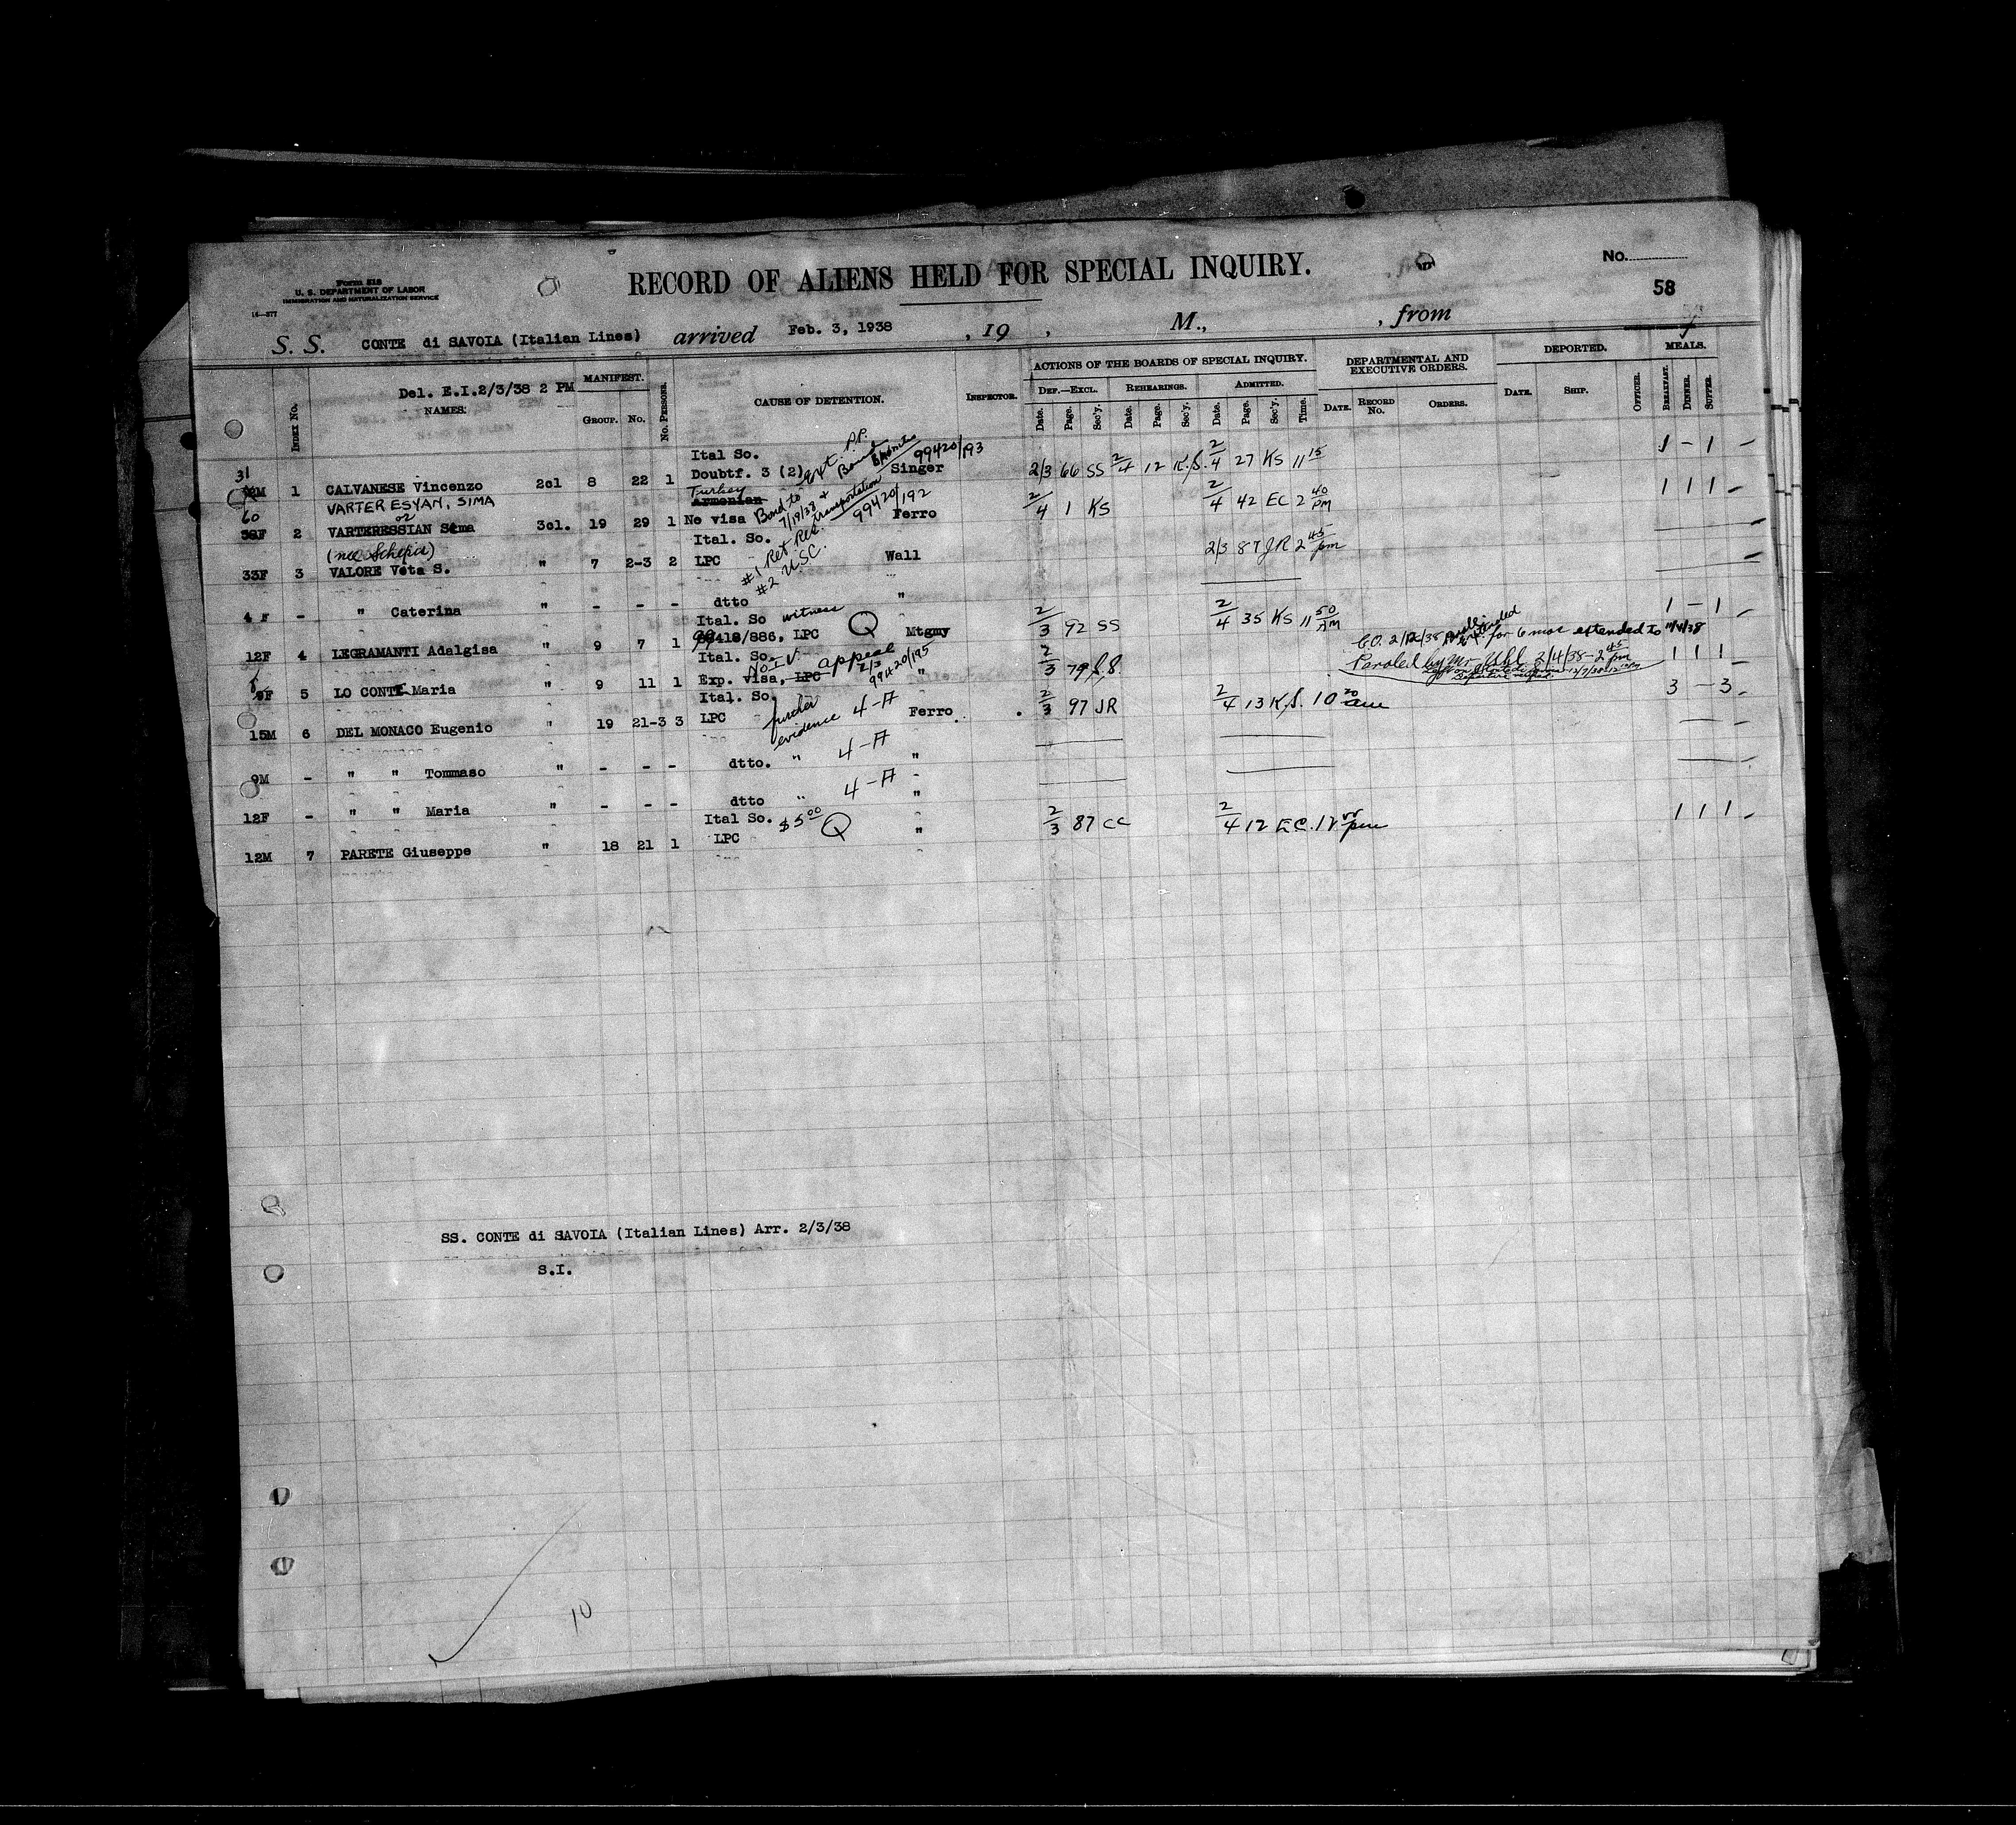 Form 518
U. S. DEPARTMENT OF LABOR
IMMIGRATION AND NATURALIZATION SERVICE
RECORD OF ALIENS HELD FOR SPECIAL INQUIRY.
No.
58
S. S. CONTE di SAVOIA (Italian Lines) arrived Feb. 3, 1938 , 19 , M., , from
ACTIONS OF THE BOARDS OF SPECIAL INQUIRY. DEPARTMENTAL AND EXECUTIVE ORDERS. DEPORTED. MEALS.
Del. E.I.2/3/38 2 PM MANIFEST.
INDEX No. NAMES. GROUP. No. No. PERSONS. CAUSE OF DETENTION. INSPECTOR.
DEF.—EXCL. REHEARINGS. ADMITTED.
Date. Page. Sec'y. Date. Page. Sec'y. Date. Page. Sec'y. Time. DATE. RECORD No. ORDERS. DATE. SHIP. OFFICER. BREAKFAST. DINNER. SUPPER.
Ital So. P.P. 99420/193
31 1 CALVANESE Vincenzo 2cl 8 22 1 Doubtf. 3 (2) Singer 2/3 66 SS 2/4 12 K.S. 2/4 27 KS 11 15 1 - 1 -
VARTERESYAN, SIMA Turkey Armenian
or
60 2 VARTERESSIAN Sima 3cl. 19 29 1 No visa Bond to 7/18/38 & transportation 99420/192 Ferro 2/4 1 KS 2/4 42 EC 2 40 PM 1 1 1 -
(nee Schepis) Ital. So. #1 Ret Res.
33F 3 VALORE Vita S. " 7 2-3 2 LPC #2 U.S.C. Wall 2/3 87 JR 2 45 pm
4 F - " Caterina " - - - dtto "
Ital. So witness
12F 4 LEGRAMANTI Adalgisa " 9 7 1 99418/886, LPC Q Mtgmy 2/3 92 SS 2/4 35 KS 11 50 AM 1 - 1 -
Ital. So. No I.V. appeal 2/3 99420/195
5 LO CONTE Maria " 9 11 1 Exp. visa, LPC " 2/3 79 1 1 1
for 6 mos extended to
Paroled by Mr. 2/4/38 - 2 45 pm
Ital. So. further evidence 4-A
15M 6 DEL MONACO Eugenio " 19 21-3 3 LPC Ferro 2/3 97 JR 2/4 13 K.S. 10 20 am 3 - 3 -
9M - " " Tommaso " - - - dtto. " 4-A "
12F - " " Maria " - - - dtto " 4-A "
Ital So. $5 00 Q
12M 7 PARETE Giuseppe " 18 21 1 LPC " 2/3 87 CC 2/4 12 EC. 1 1 1 -
SS. CONTE di SAVOIA (Italian Lines) Arr. 2/3/38
S.I.
10